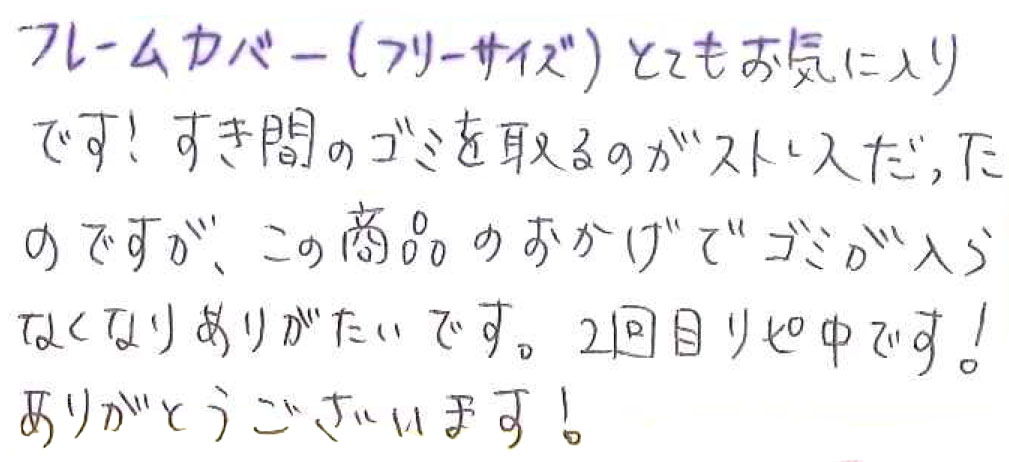 フレームカバー(フリーサイズ)とてもお気に入り
です！すき間のゴミを取るのがストレスだった
のですが、この商品のおかげでゴミが入ら
なくなりありがたいです。2回目リピ中です！
ありがとうございます！